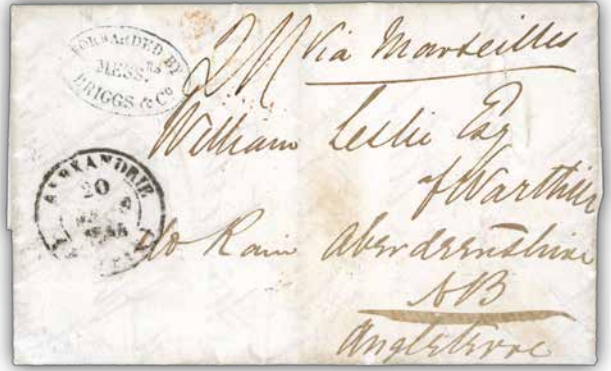 FORWARDED BY
MESS.RS
BRIGGS & Co
Via Marseilles
William Leslie Esq
of Warthill
Aberdeenshire
NB
Angleterre
ALEXANDRIE
20